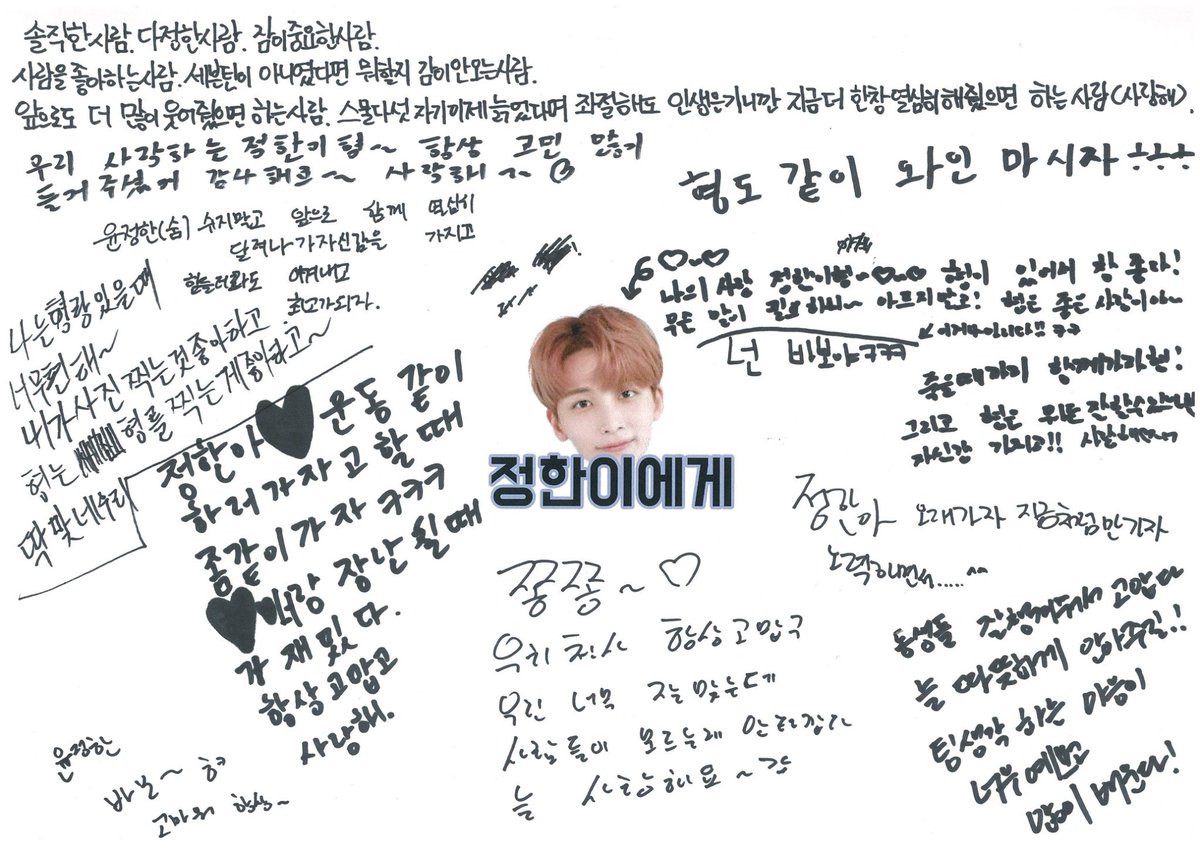 솔직한사람. 다정한사람. 잠이중요한사람.
사람을 좋아하는사람. 세븐틴이 아니었다면 뭐할지 감이안오는사람.
앞으로도 더 많이 웃어줬으면 하는사람. 스물다섯 자기이제늙었다며 좌절해도 인생은기니깐 지금더 한창 열심히해줬으면 하는 사람(사랑해).
우리 사랑하는 정한이 형~ 항상 고민 많이
들어 주셔서 감사해요~ 사랑해
형도 같이 와인 마시자
윤정한(숨) 쉬지말고 앞으로 함께 열심히
달려나가자신감을 가지고
힘들더라도 이겨내고
최고가되자.
나는형랑있을때
너무편해~
내가사진 찍는것좋아하고
형는 형를 찍는게좋아하고~
딱 맞네우리
정한아♥운동 같이
하러가자고할때
좀같이가자ㅋㅋㅋ
♥너랑 장난칠때
가 재밌다.
항상고맙고
사랑해.
나의 사랑 정한이형~♡ 형이 있어서 참 좋다!
무슨 말이 필요하씨~ 아프지만고! 형은 좋은 사람이야~
넌 바보야ㅋㅋㅋ
죽을때까지 함께가자형!
그리고 형은 뭐든 잘할수있으니
자신감 가지고!! 사랑해
정한이에게
정한아 오래가자 지금처럼만가자
노력하면서.....^^
쫑쫑~♡
우리천사 항상고맙구
우린 너무 잘 맞는데
사람들이 모르는게 안타깝다
늘 사랑해요~
동생들 잘챙겨줘서 고맙다
늘 따뜻하게 안아주길!!
팀생각 하는 마음이
너무예뻐
많이 배운다!
윤정한
바보~
고마워 항상~